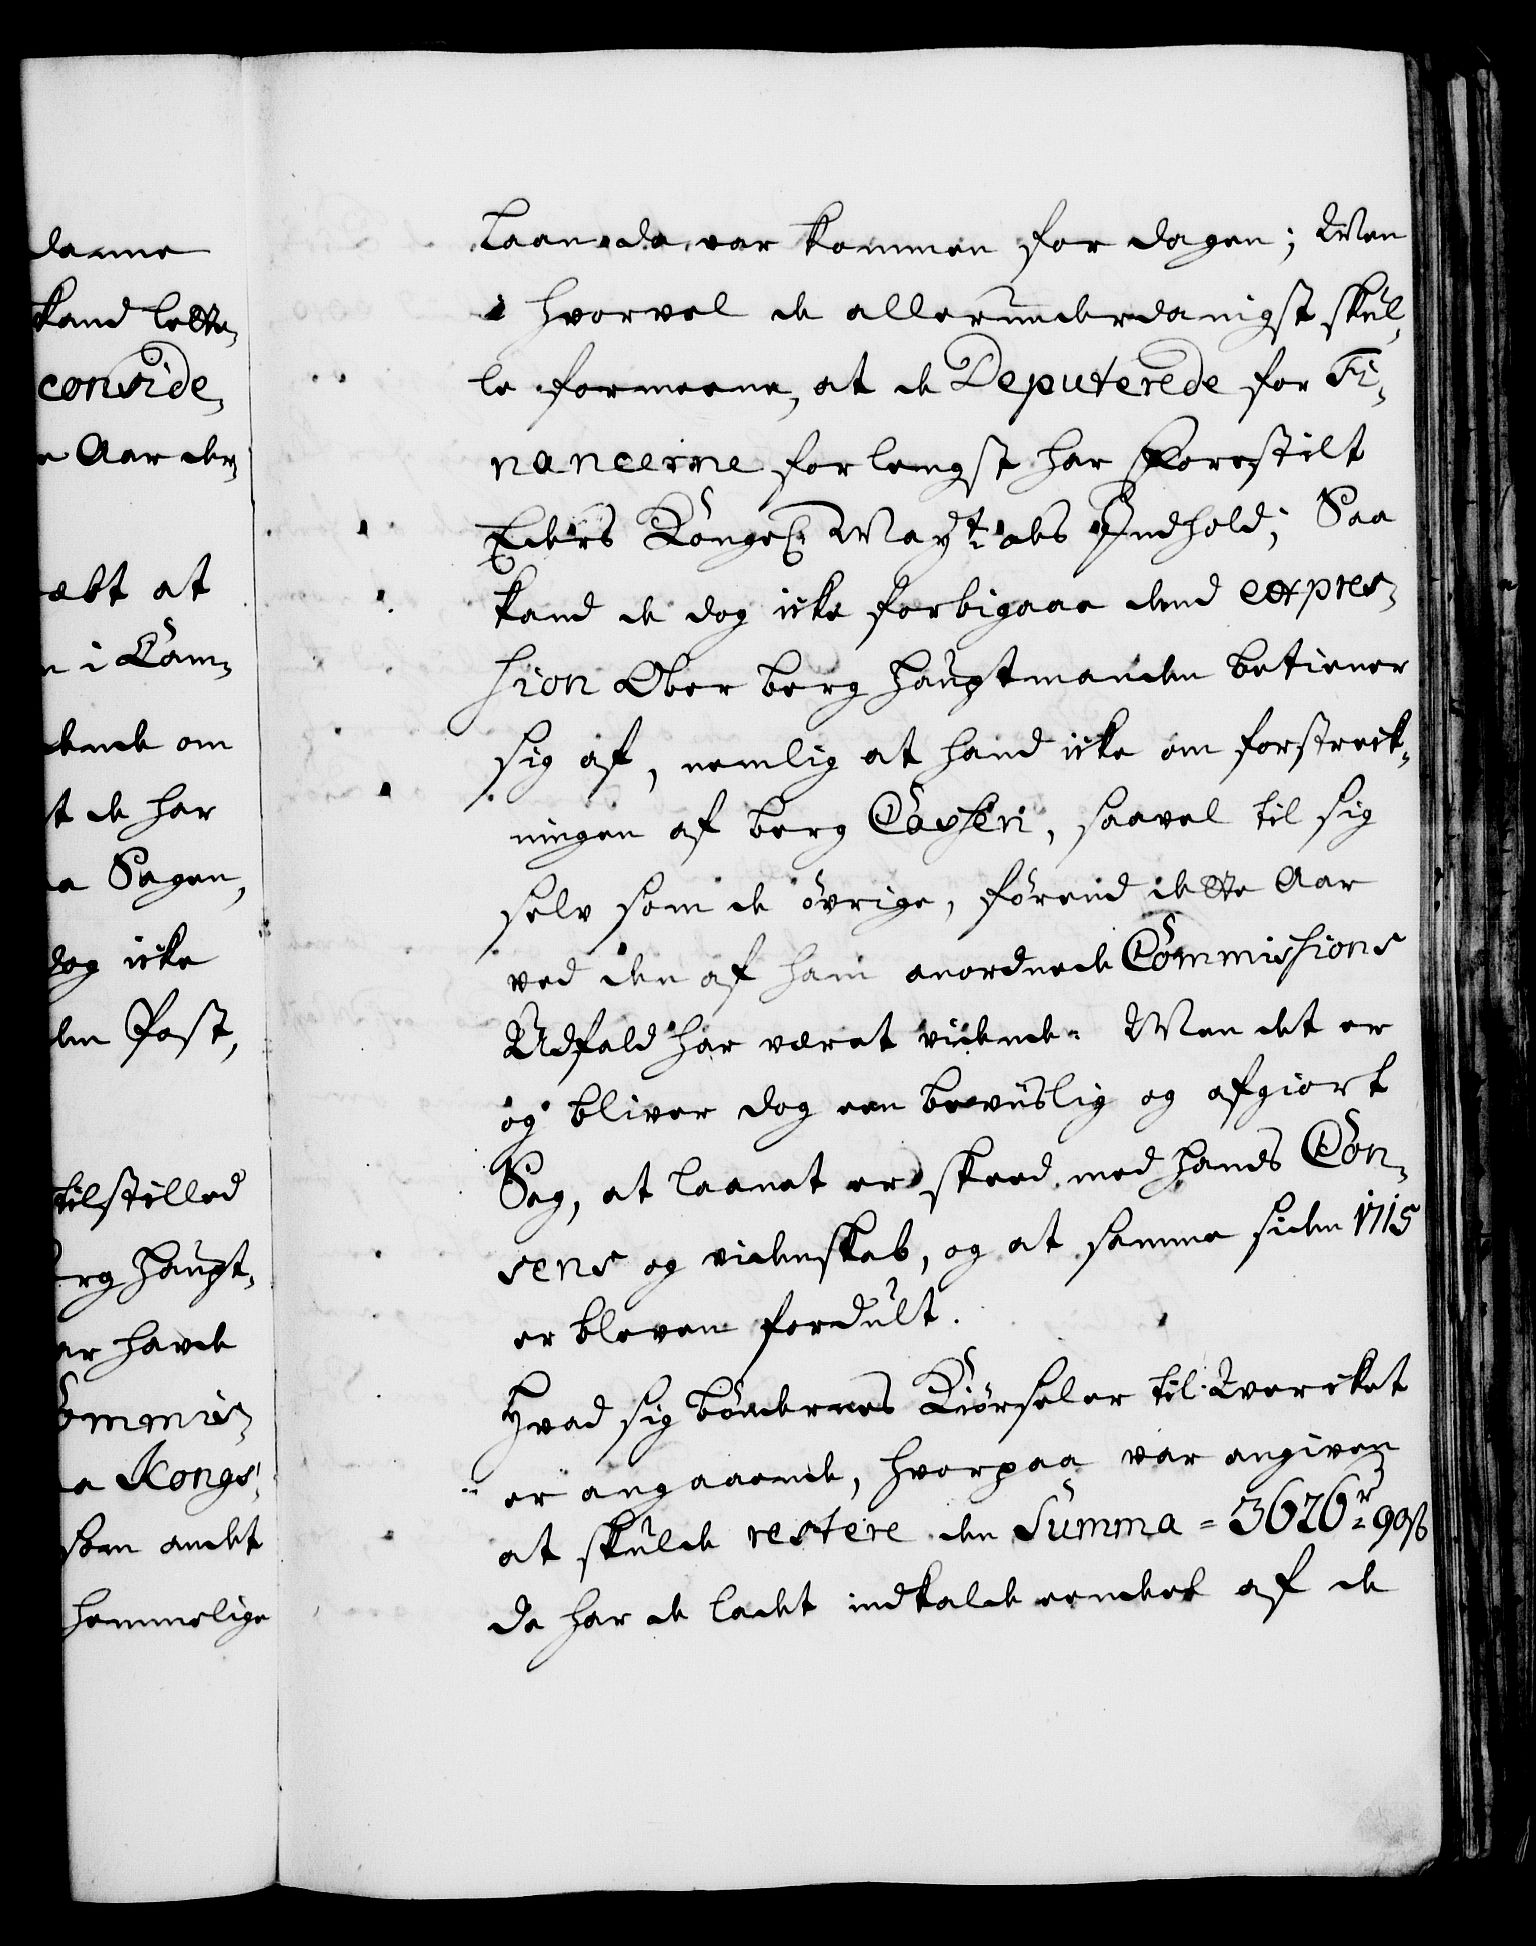 danne
kand lette,
conside,
Aar der,
æbt at
i Cam,
dende om
st de har
Sagen,
dog icke
den Post,
tilstilled
erg haupt,
ar havde
ommis,
a Kongs,
som andet
hemmelige
laan da var kommen for dagen; Men
i hvorvel de allerunderdanigst skul,
le formeene, at de Deputerede for Fi,
nancerne forlengst har Forestilt
Eders Kongel: Mayt: des Indhold; Saa
kand de dog icke forbigaae dend expres,
sion Ober berg hauptmanden betiener
sig af, nemlig at hand icke om forstreck,
ningen af berg Casseri, saavel til sig
selv som de øvrige, førend dette Aar
ved den af ham anordnede Commissions
Udfald har været vidende. Men det er
og bliver dog een beviislig og afgiort
Sag, at laanet er skeed med hands Con,
sens og videnskab, og at samme siden 1715
er bleven fordult.
Hvad sig bøndernes Kiørseler til Wercket
er angaaende, hvorpaa var angiven
at skulde restere den Summa = 3626 r 90 ß
da har de ladt indkalde eendeel af de